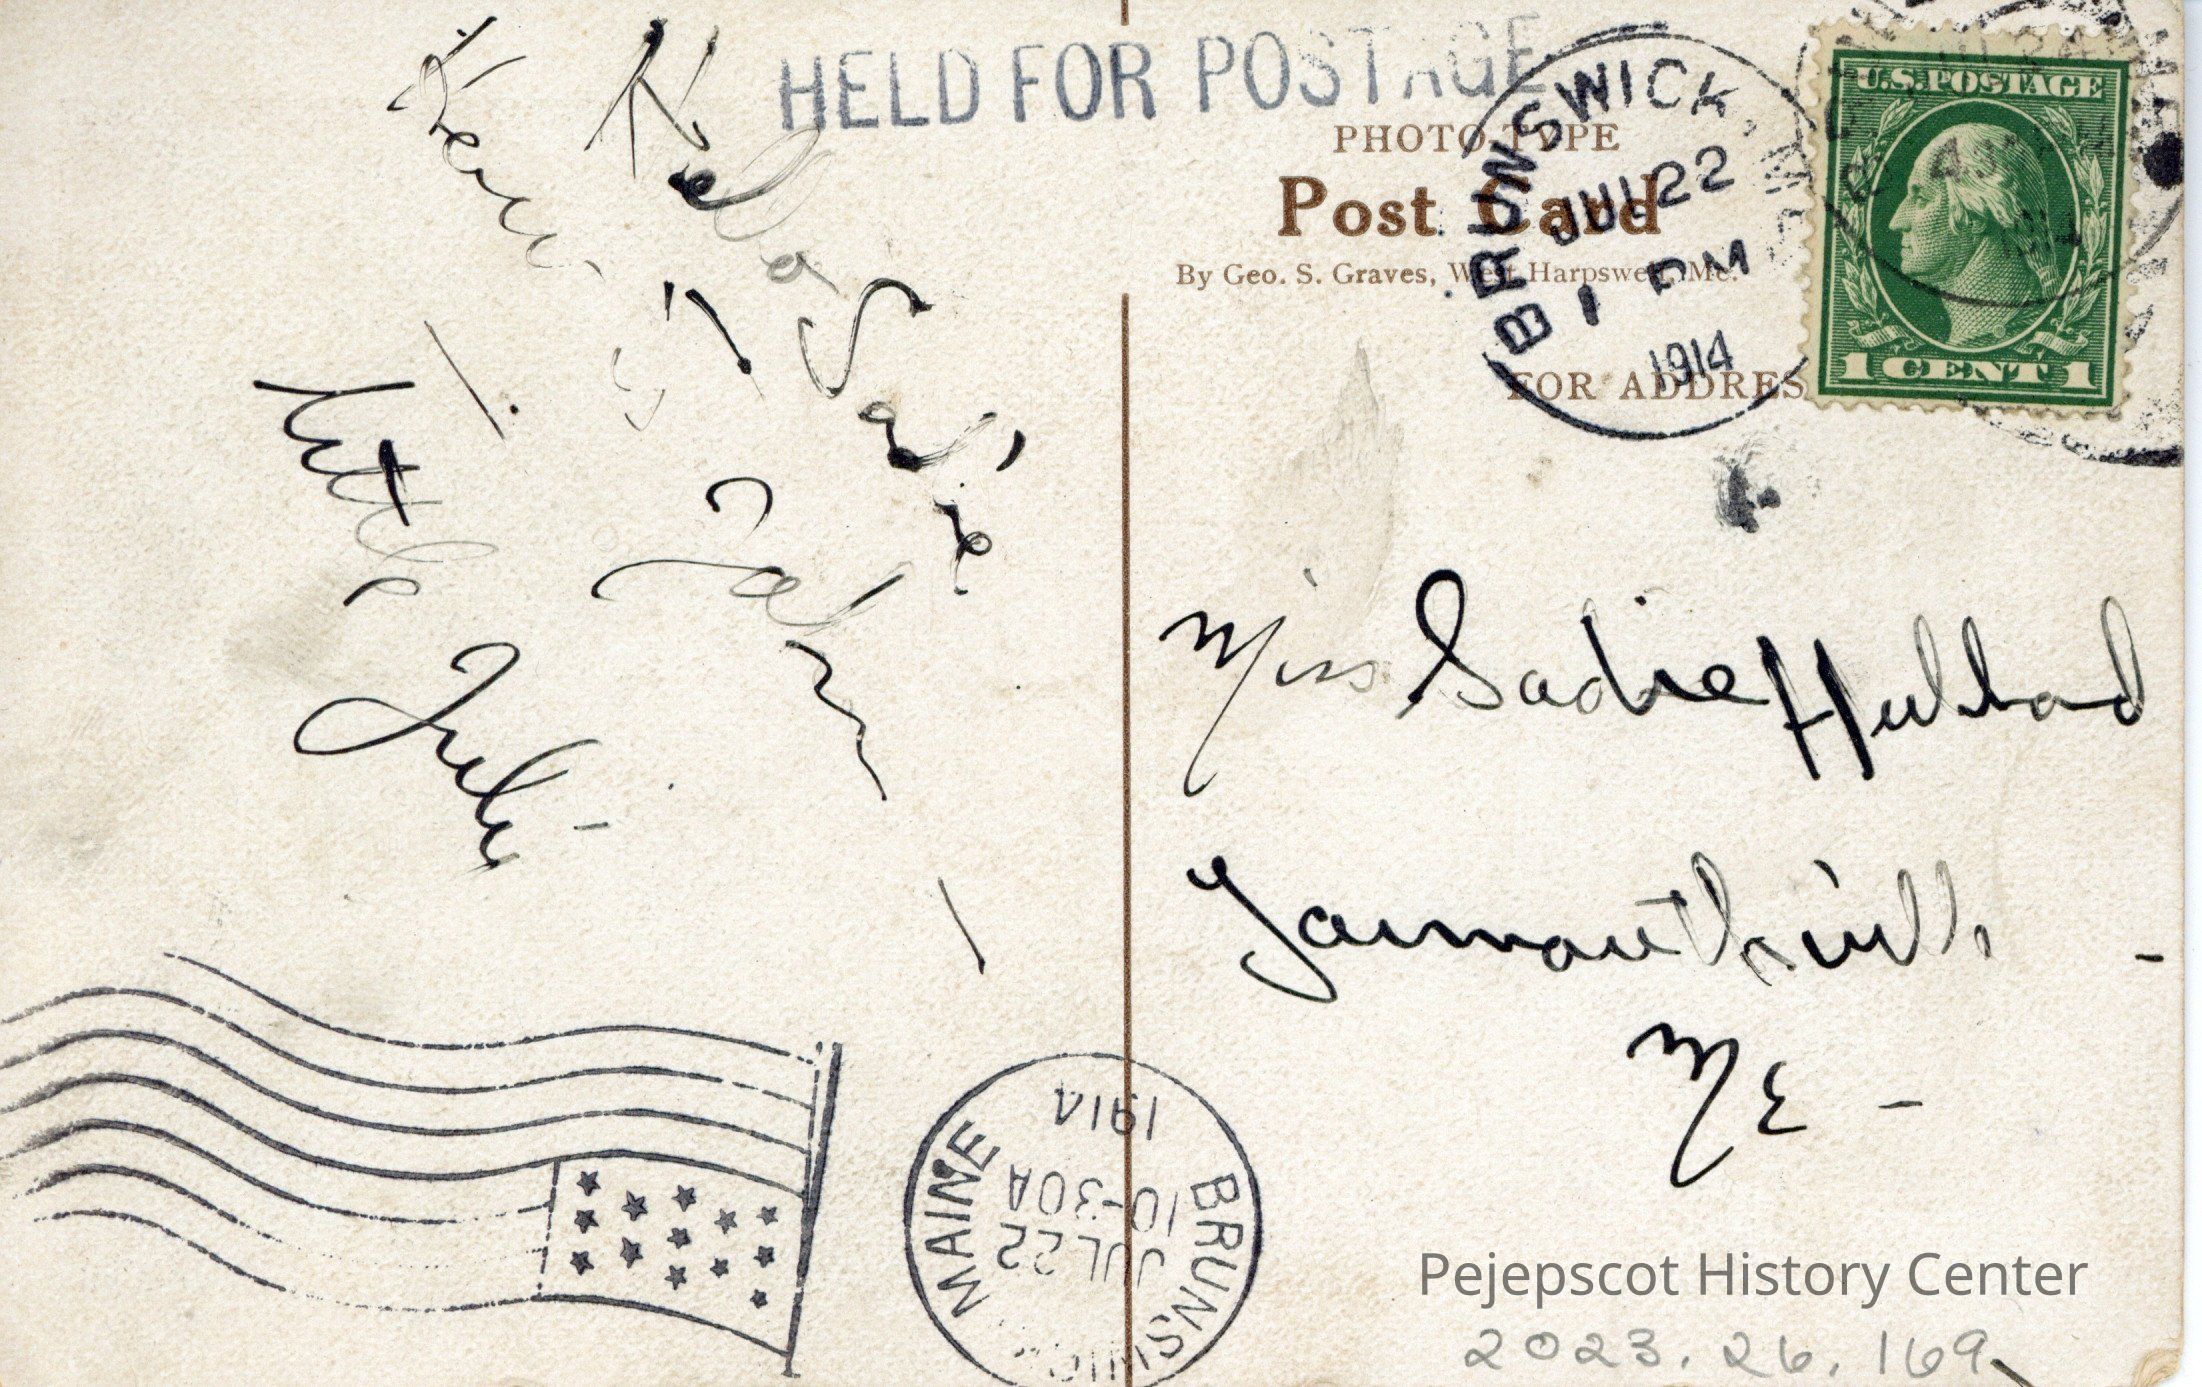 HELD FOR POSTAGE
PHOTO-TYPE
Post Card
By Geo. S. Graves, West Harpswell, Me.
FOR ADDRES
BRUNSWICK,
JUL 22
1 PM
1914
U.S. POSTAGE
1 CENT 1
Hello Sadie,
little
Miss Sadie Hubbard
Yarmouthville -
ME -
BRUNSWICK
MAINE
JUL 22
10-30A
1914
Pejepscot History Center
2023.26.169